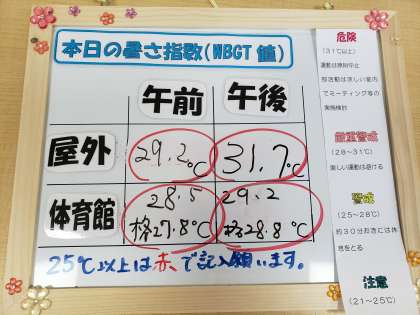 本日の暑さ指数(WBGT 値)
午前 午後
屋外 29.2℃ 31.7℃
体育館 28.5 29.2
格27.8℃ 格28.8℃
25℃以上は赤で記入願います。
危険
(31℃以上)
運動は原則中止
部活動は涼しい室内
でミーティング等の
実施検討
厳重警戒
(28~31℃)
激しい運動は避ける
警戒
(25~28℃)
約30分おきには休
息をとる
注意
(21~25℃)